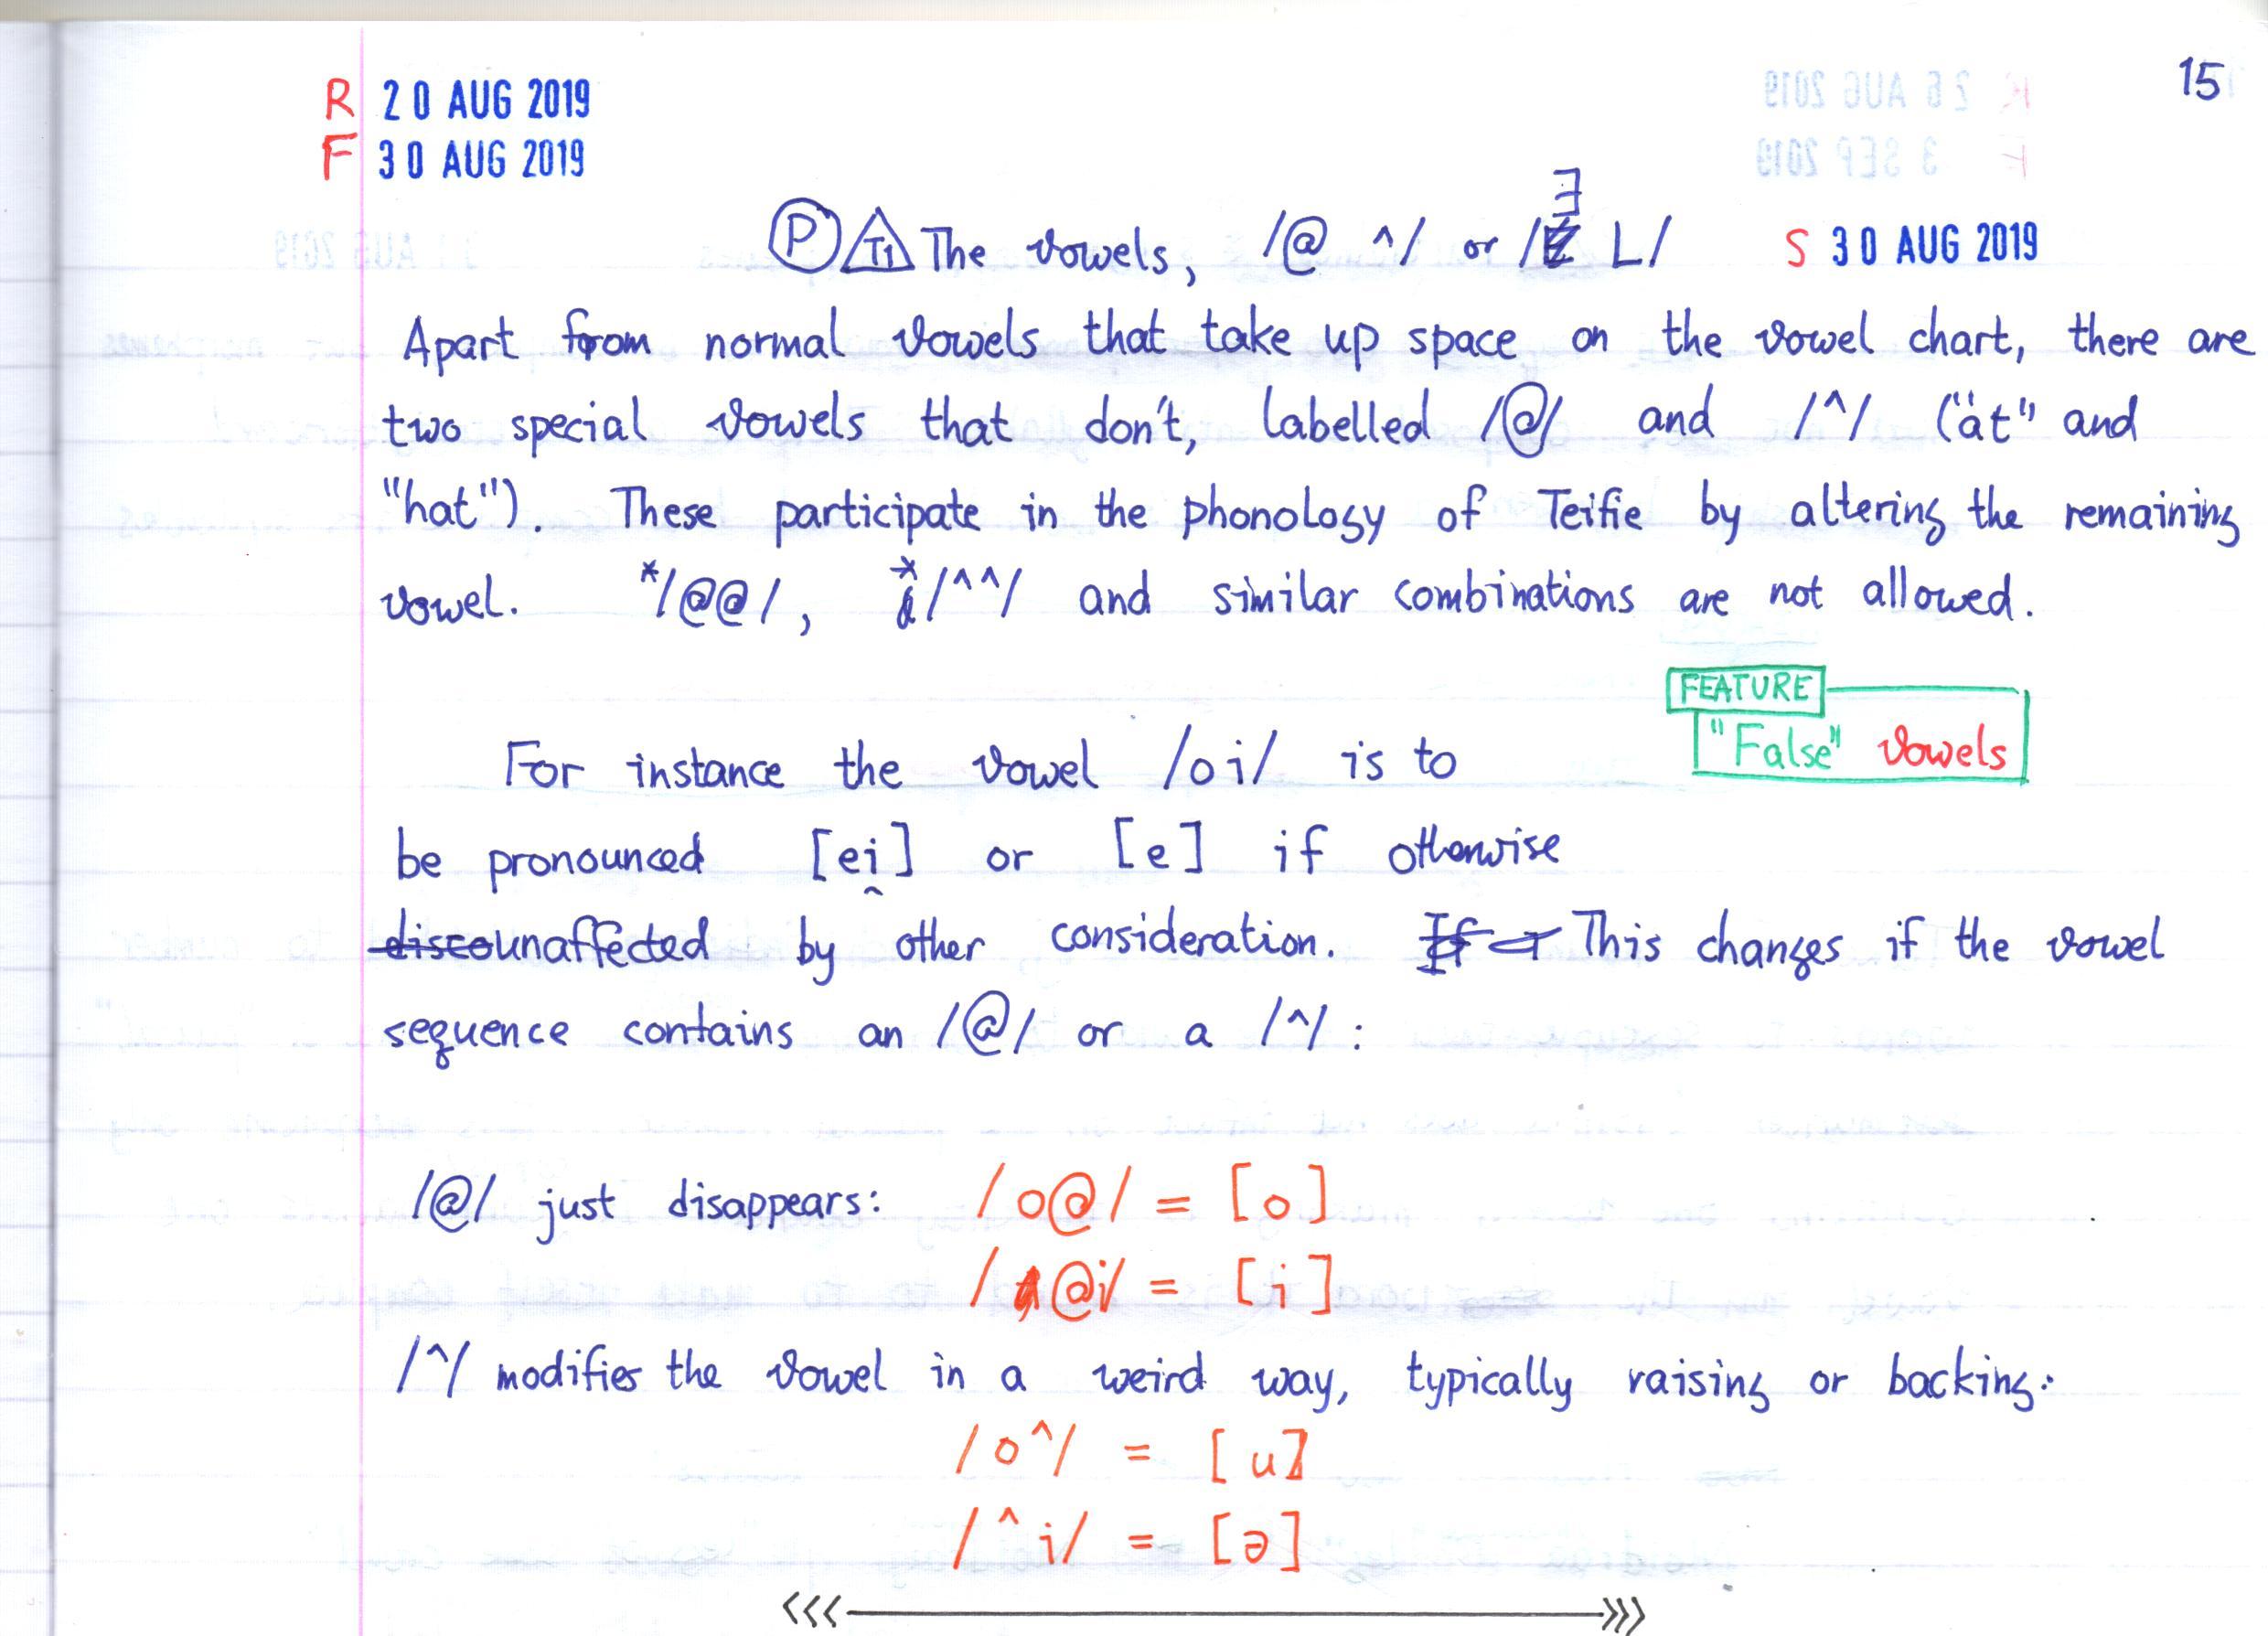 15
R 20 AUG 2019
F 30 AUG 2019
P T1 The vowels, /@ ^/ or /Ǝ L/ S 30 AUG 2019
Apart from normal vowels that take up space on the vowel chart, there are
two special vowels that don't, labelled /@/ and /^/ ("ät" and
"hat"). These participate in the phonology of Teifie by altering the remaining
vowel. */@@/, */^^/ and similar combinations are not allowed.
FEATURE
"False" vowels
For instance the vowel /oi/ is to
be pronounced [ei̯] or [e] if otherwise
discounaffected by other consideration. If a This changes if the vowel
sequence contains an /@/ or a /^/:
/@/ just disappears: /o@/ = [o]
/@i/ = [i]
/^/ modifies the vowel in a weird way, typically raising or backing:
/o^/ = [u]
/^i/ = [ə]
<<< >>>